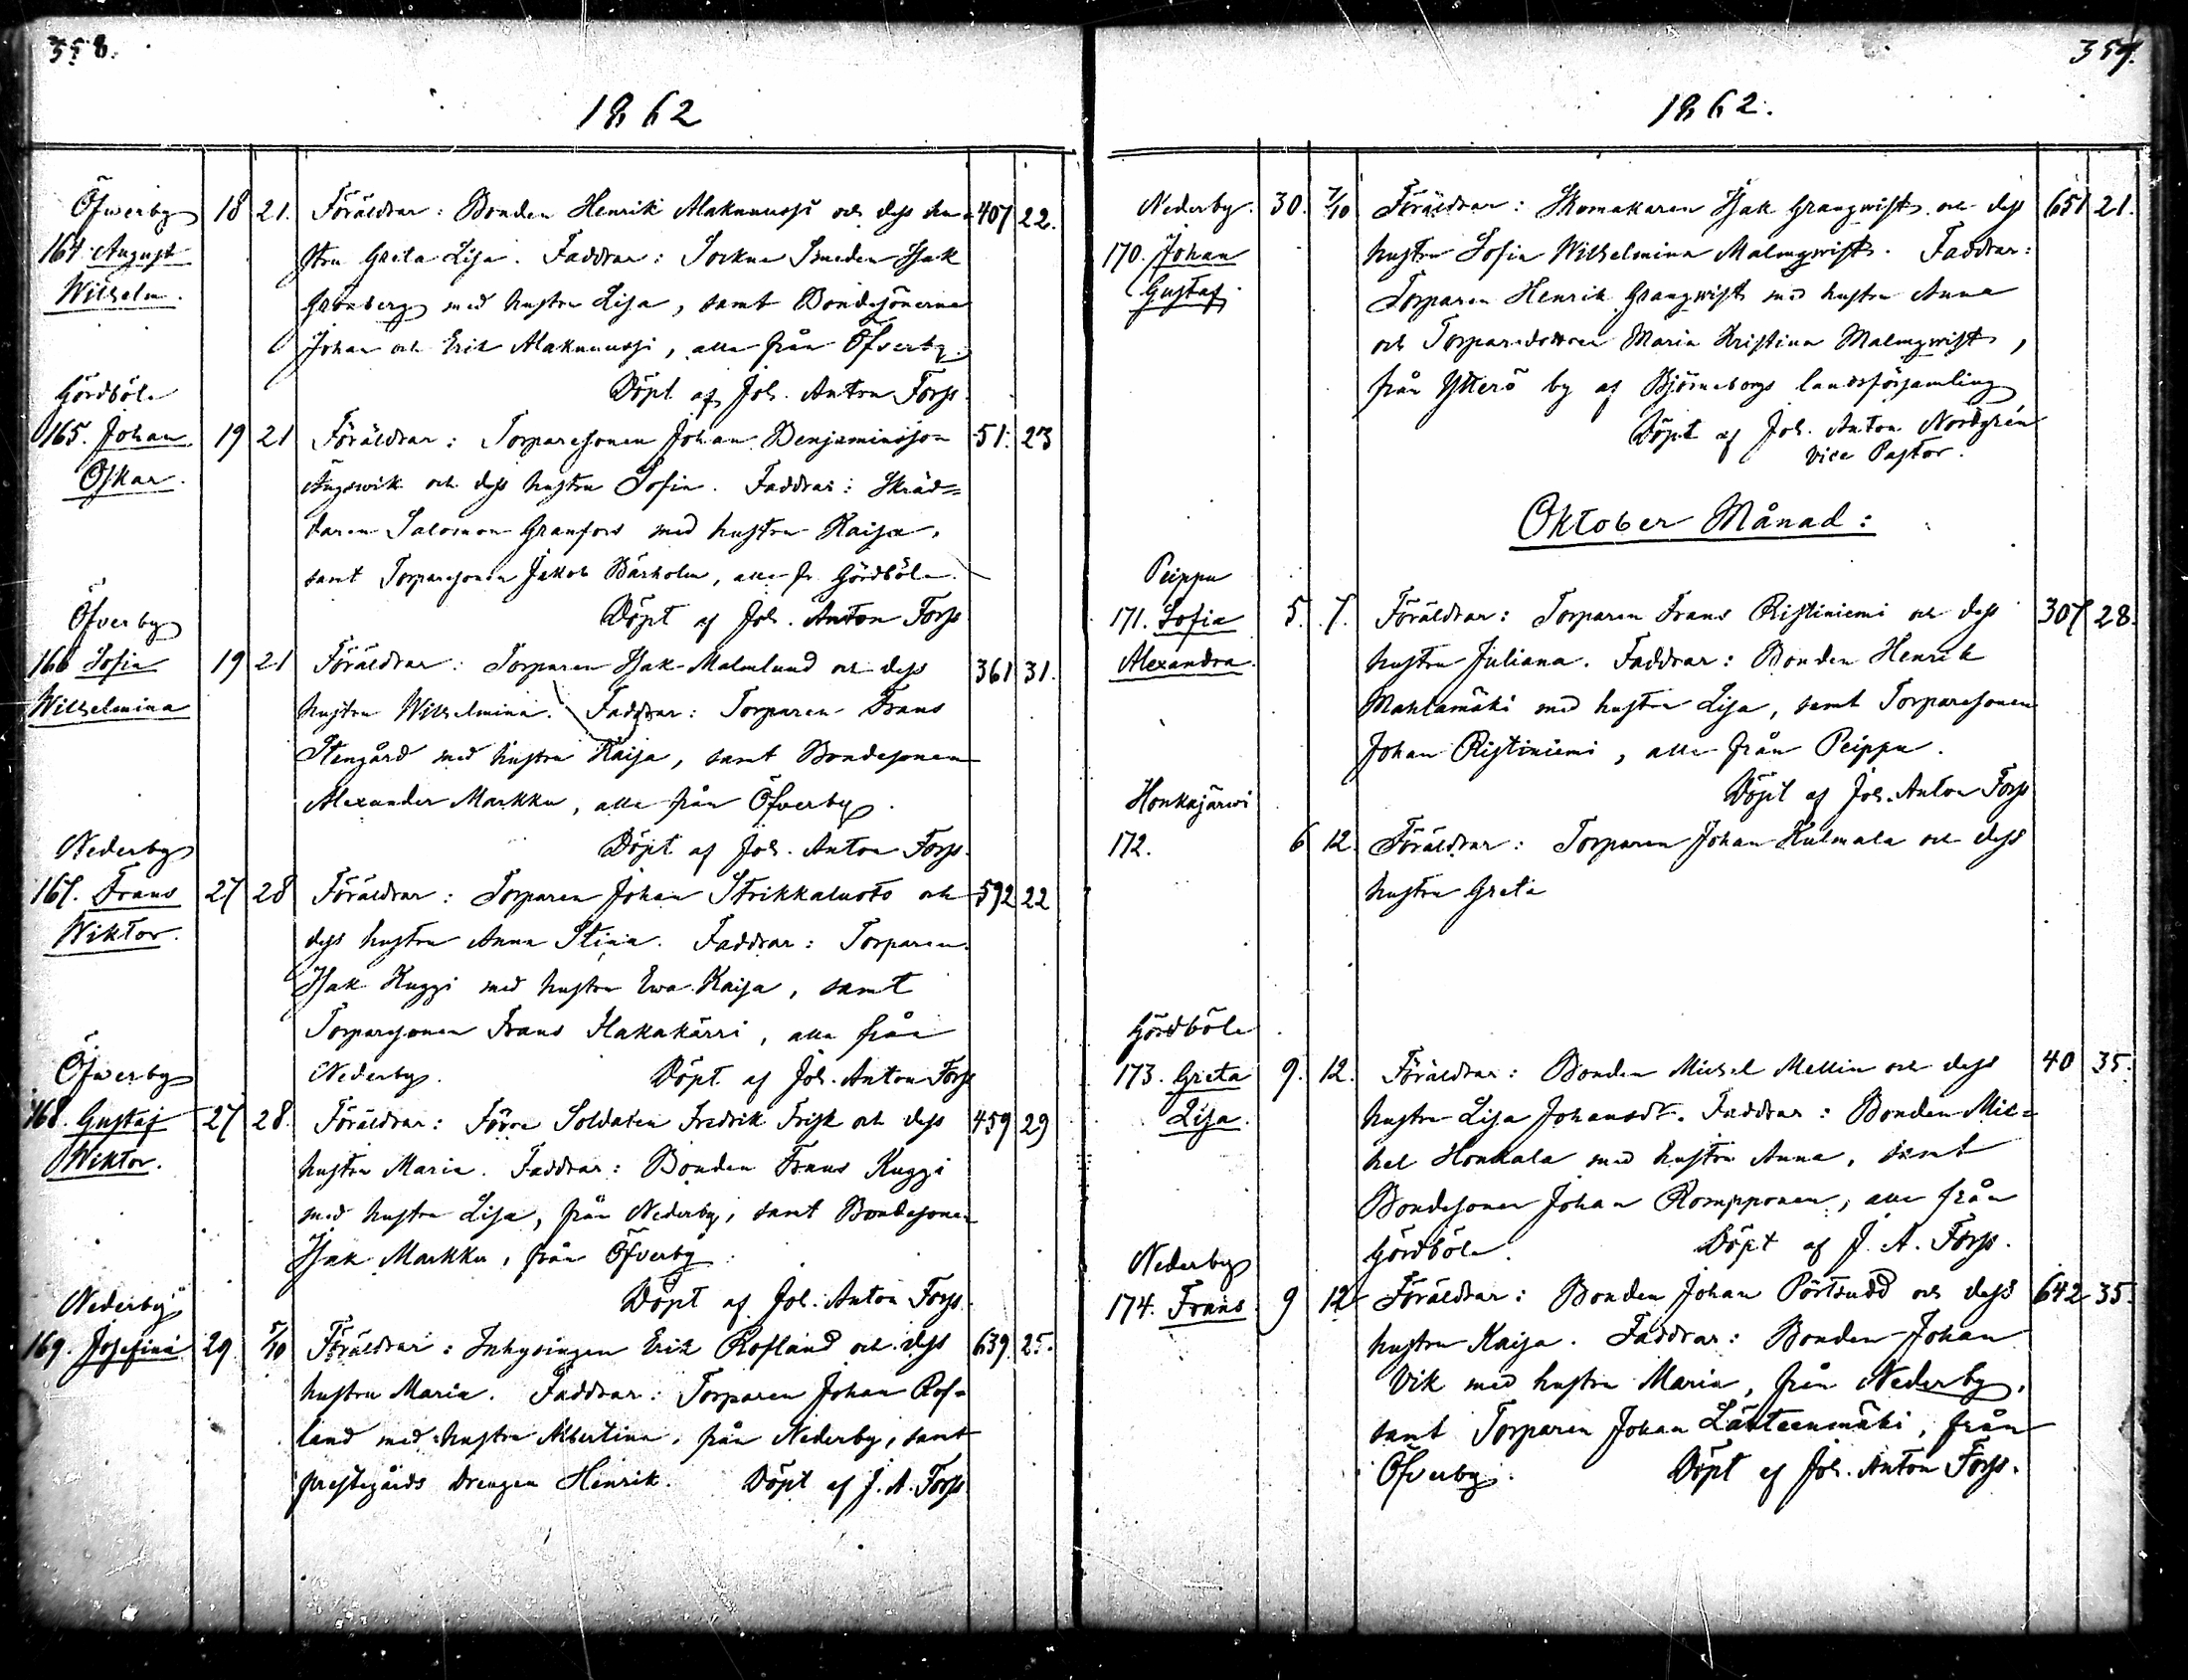 358.
1862
Öfwerby 18 21. Föräldrar: Bonden Henrik Alaknuussi och dess hu- 407 22.
164. August stru Greta Lisa. Faddrar: Sockne Smeden Isak
Wilhelm. Grönberg med hustru Lisa, samt Bondesönerna
Johan och Erik Alaknuussi, alla från Öfverby.
Gördböle Döpt af Joh. Anton Forss.
165. Johan 19 21 Föräldrar: Torparesonen Johan Benjaminsson 51. 23
Oskar. Ängswik och dess hustru Sofia. Faddrar: Skräd=
daren Salomon Granfors med hustru Kaisa,
samt Torparesonen Jakob Bärholm, alla fr. Gördböle.
Öfverby Döpt af Joh. Anton Forss
166 Sofia 19 21 Föräldrar: Torparen Isak Malmlund och dess 361 31.
Wilhelmina hustru Wilhelmina. Faddrar: Torparen Frans
Stengård med hustru Kaisa, samt Bondesonen
Alexander Markku, alla från Öfverby.
Nederby Döpt af Joh. Anton Forss.
167. Frans 27 28 Föräldrar: Torparen Johan Strikkaluoto och 592 22
Wiktor. dess hustru Anna Stina. Faddrar: Torparen
Isak Kuggi med hustru Ewa Kaisa, samt
Torparesonen Frans Hakakärri, alla från
Öfwerby Nederby. Döpt af Joh. Anton Forss
168. Gustaf 27 28. Föräldrar: Förre Soldaten Fredrik Frisk och dess 459 29
Wiktor. hustru Maria. Faddrar: Bonden Frans Kuggi
med hustru Lisa, från Nederby, samt Bondesonen
Isak Markku, från Öfverby.
Nederby Döpt af Joh. Anton Forss.
169. Josefina 29 5/10 Föräldrar: Inhysingen Erik Rofland och dess 639 25.
hustru Maria. Faddrar: Torparen Johan Rof-
land med hustru Albertina, från Nederby, samt
prestegårds Drengen Henrik. Döpt af J. A. Forss
359.
1862.
Nederby. 30. 7/10 Föräldrar: Skomakaren Isak Granqwist och dess 651 21.
170. Johan hustru Sofia Wilhelmina Malmqwist. Faddrar:
Gustaf. Torparen Henrik Granqwist med hustru Anna
och Torparedottren Maria Kristina Malmqwist,
från Ytterö by af Björneborgs landsförsamling
Döpt af Joh. Anton Nordgrén
Vice Pastor.
Oktober Månad:
Peippu
171. Sofia 5. 7. Föräldrar: Torparen Frans Ristiniemi och dess 307 28.
Alexandra. hustru Juliana. Faddrar: Bonden Henrik
Mahlamäki med hustru Lisa, samt Torparesonen
Johan Ristiniemi, alla från Peippu.
Honkajärwi Döpt af Joh. Anton Forss
172. 6 12. Föräldrar: Torparen Johan Kulmala och dess
hustru Greta
Gördböle
173. Greta 9. 12. Föräldrar: Bonden Michel Mellin och dess 40 35.
Lisa. hustru Lisa Johansdr. Faddrar: Bonden Mic=
hel Honkala med hustru Anna, samt
Bondesonen Johan Rompponen, alla från
Nederby Gördböle. Döpt af J. A. Forss.
174. Frans 9 12 Föräldrar: Bonden Johan Pörtsudd och dess 642 35.
hustru Kaisa. Faddrar: Bonden Johan
Vik med hustru Maria, från Nederby,
samt Torparen Johan Lähteenmäki, från
Öfverby. Döpt af Joh. Anton Forss.